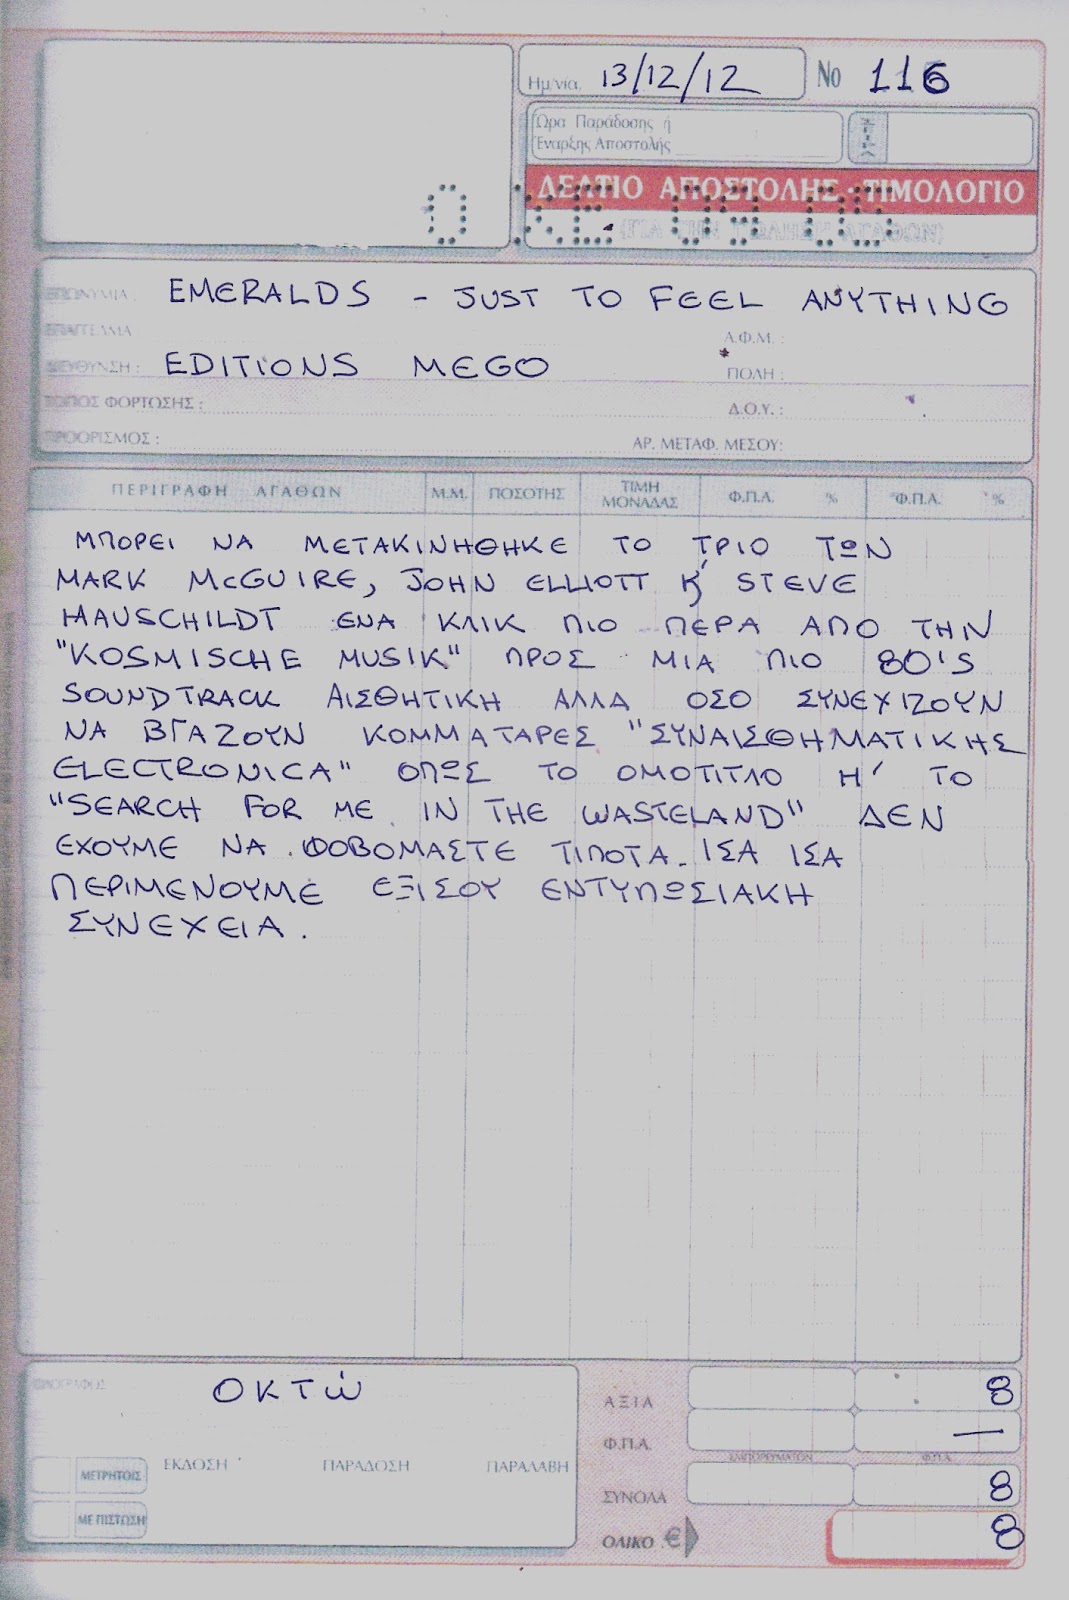 Ημ/νία. 13/12/12 Νο 116
Ώρα Παράδοσης ή
Έναρξης Αποστολής
ΔΕΛΤΙΟ ΑΠΟΣΤΟΛΗΣ - ΤΙΜΟΛΟΓΙΟ
(ΓΙΑ ΤΗΝ ΠΩΛΗΣΗ ΑΓΑΘΩΝ)
ΕΠΩΝΥΜΙΑ : EMERALDS - JUST TO FEEL ANYTHING
ΕΠΑΓΓΕΛΜΑ Α.Φ.Μ. :
ΔΙΕΥΘΥΝΣΗ : EDITIONS MEGO ΠΟΛΗ :
ΤΟΠΟΣ ΦΟΡΤΩΣΗΣ : Δ.Ο.Υ. :
ΠΡΟΟΡΙΣΜΟΣ : ΑΡ. ΜΕΤΑΦ. ΜΕΣΟΥ:
ΠΕΡΙΓΡΑΦΗ ΑΓΑΘΩΝ Μ.Μ. ΠΟΣΟΤΗΣ ΤΙΜΗ ΜΟΝΑΔΑΣ Φ.Π.Α. % Φ.Π.Α. %
ΜΠΟΡΕΙ ΝΑ ΜΕΤΑΚΙΝΗΘΗΚΕ ΤΟ ΤΡΙΟ ΤΩΝ
MARK McGUIRE, JOHN ELLIOTT Κ' STEVE
HAUSCHILDT ΕΝΑ ΚΛΙΚ ΠΙΟ ΠΕΡΑ ΑΠΟ ΤΗΝ
"KOSMISCHE MUSIK" ΠΡΟΣ ΜΙΑ ΠΙΟ 80'S
SOUNDTRACK ΑΙΣΘΗΤΙΚΗ ΑΛΛΑ ΟΣΟ ΣΥΝΕΧΙΖΟΥΝ
ΝΑ ΒΓΑΖΟΥΝ ΚΟΜΜΑΤΑΡΕΣ "ΣΥΝΑΙΣΘΗΜΑΤΙΚΗΣ
ELECTRONICA" ΟΠΩΣ ΤΟ ΟΜΟΤΙΤΛΟ Η' ΤΟ
"SEARCH FOR ME IN THE WASTELAND" ΔΕΝ
ΕΧΟΥΜΕ ΝΑ ΦΟΒΟΜΑΣΤΕ ΤΙΠΟΤΑ. ΙΣΑ ΙΣΑ
ΠΕΡΙΜΕΝΟΥΜΕ ΕΞΙΣΟΥ ΕΝΤΥΠΩΣΙΑΚΗ
ΣΥΝΕΧΕΙΑ.
ΟΛΟΓΡΑΦΩΣ ΟΚΤΩ
ΑΞΙΑ 8
Φ.Π.Α. —
ΕΚΔΟΣΗ ΠΑΡΑΔΟΣΗ ΠΑΡΑΛΑΒΗ
ΜΕΤΡΗΤΟΙΣ
ΣΥΝΟΛΑ 8
ΜΕ ΠΙΣΤΩΣΗ
ΟΛΙΚΟ € 8